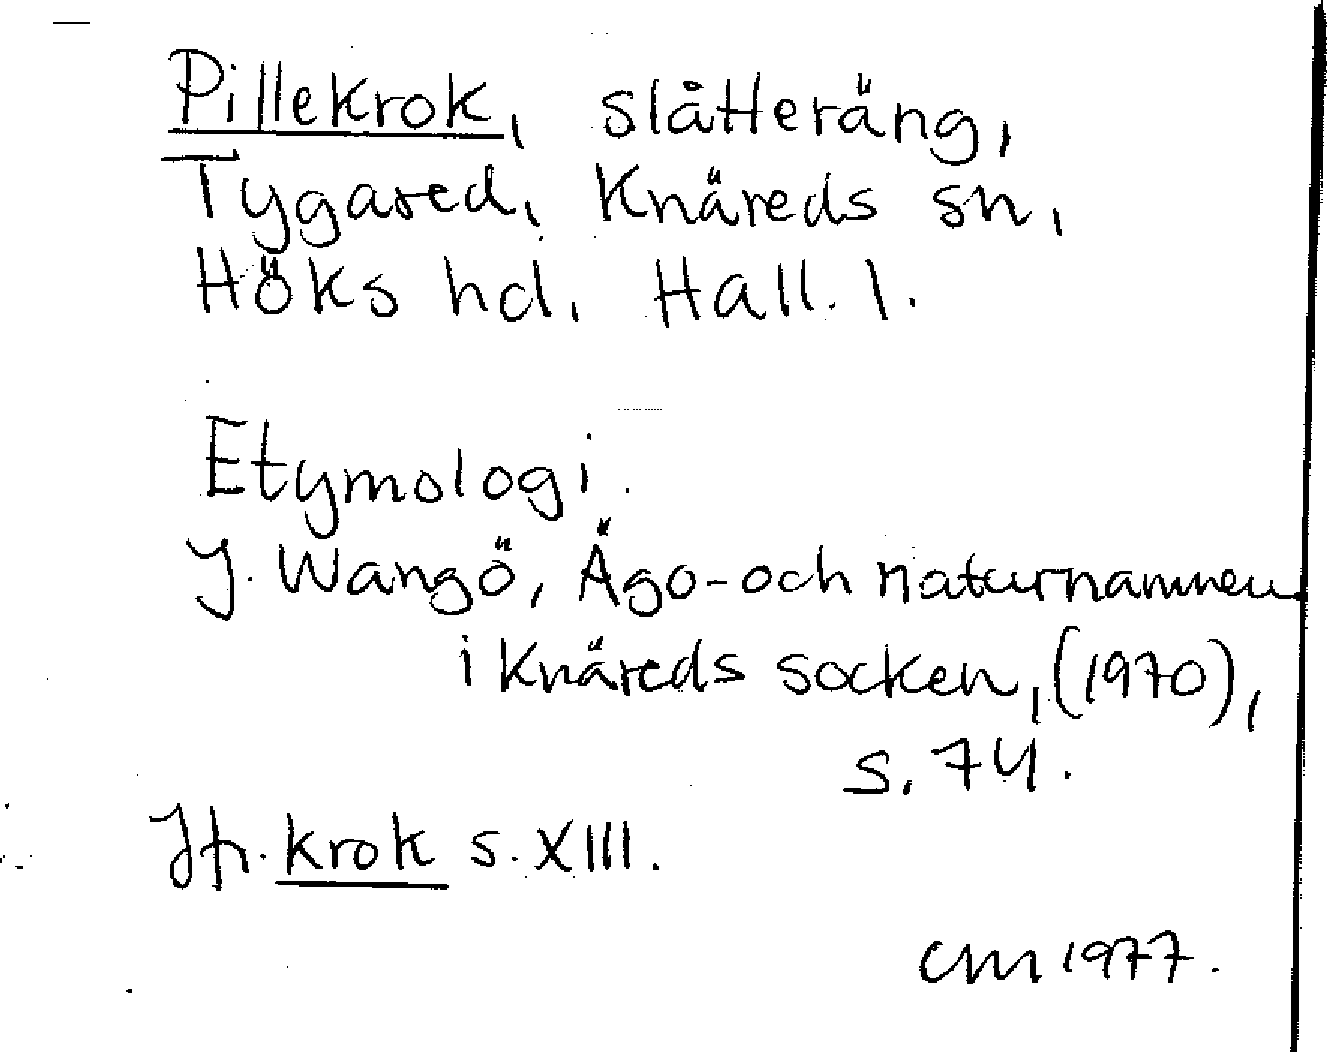 Pillekrok, slåtteräng,
Tygared, Knäreds sn,
Höks hd, Hall. l.
Etymologi.
J. Wangö, Ägo- och naturnamnen
i Knäreds socken, (1970),
s. 74.
Jfr. krok s. XIII.
CM 1977.